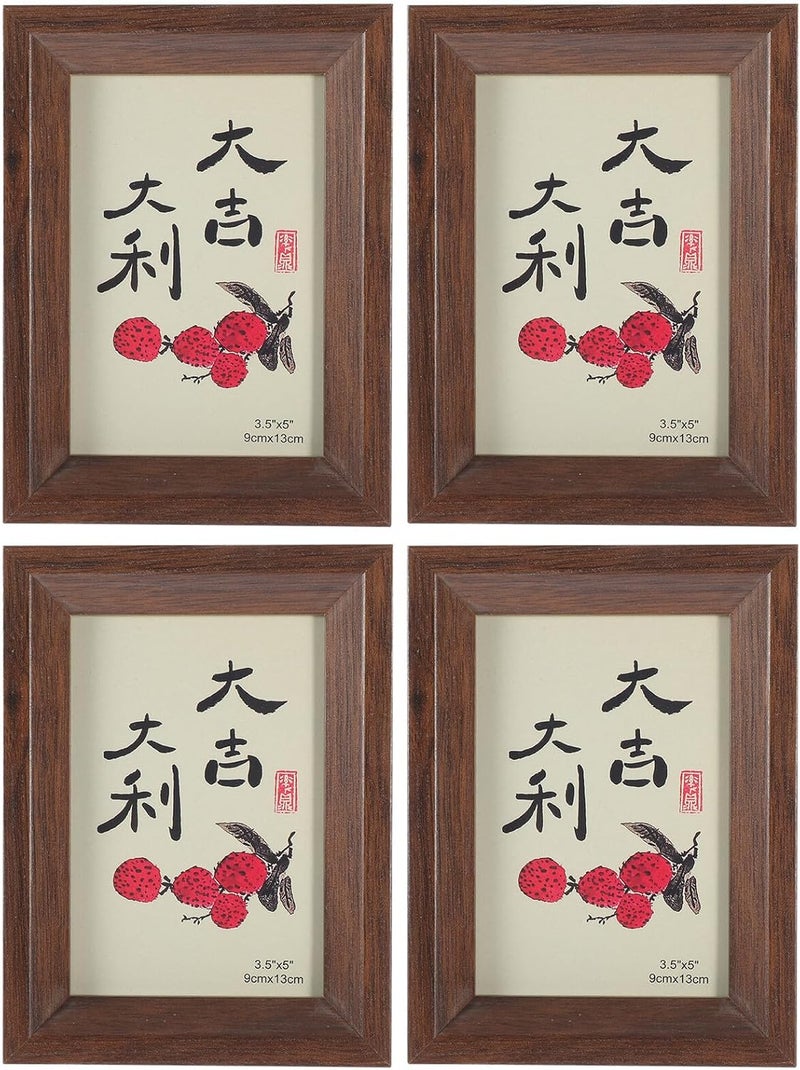 大吉
大利
3.5"x5"
9cmx13cm
大吉
大利
3.5"x5"
9cmx13cm
大吉
大利
3.5"x5"
9cmx13cm
大吉
大利
3.5"x5"
9cmx13cm